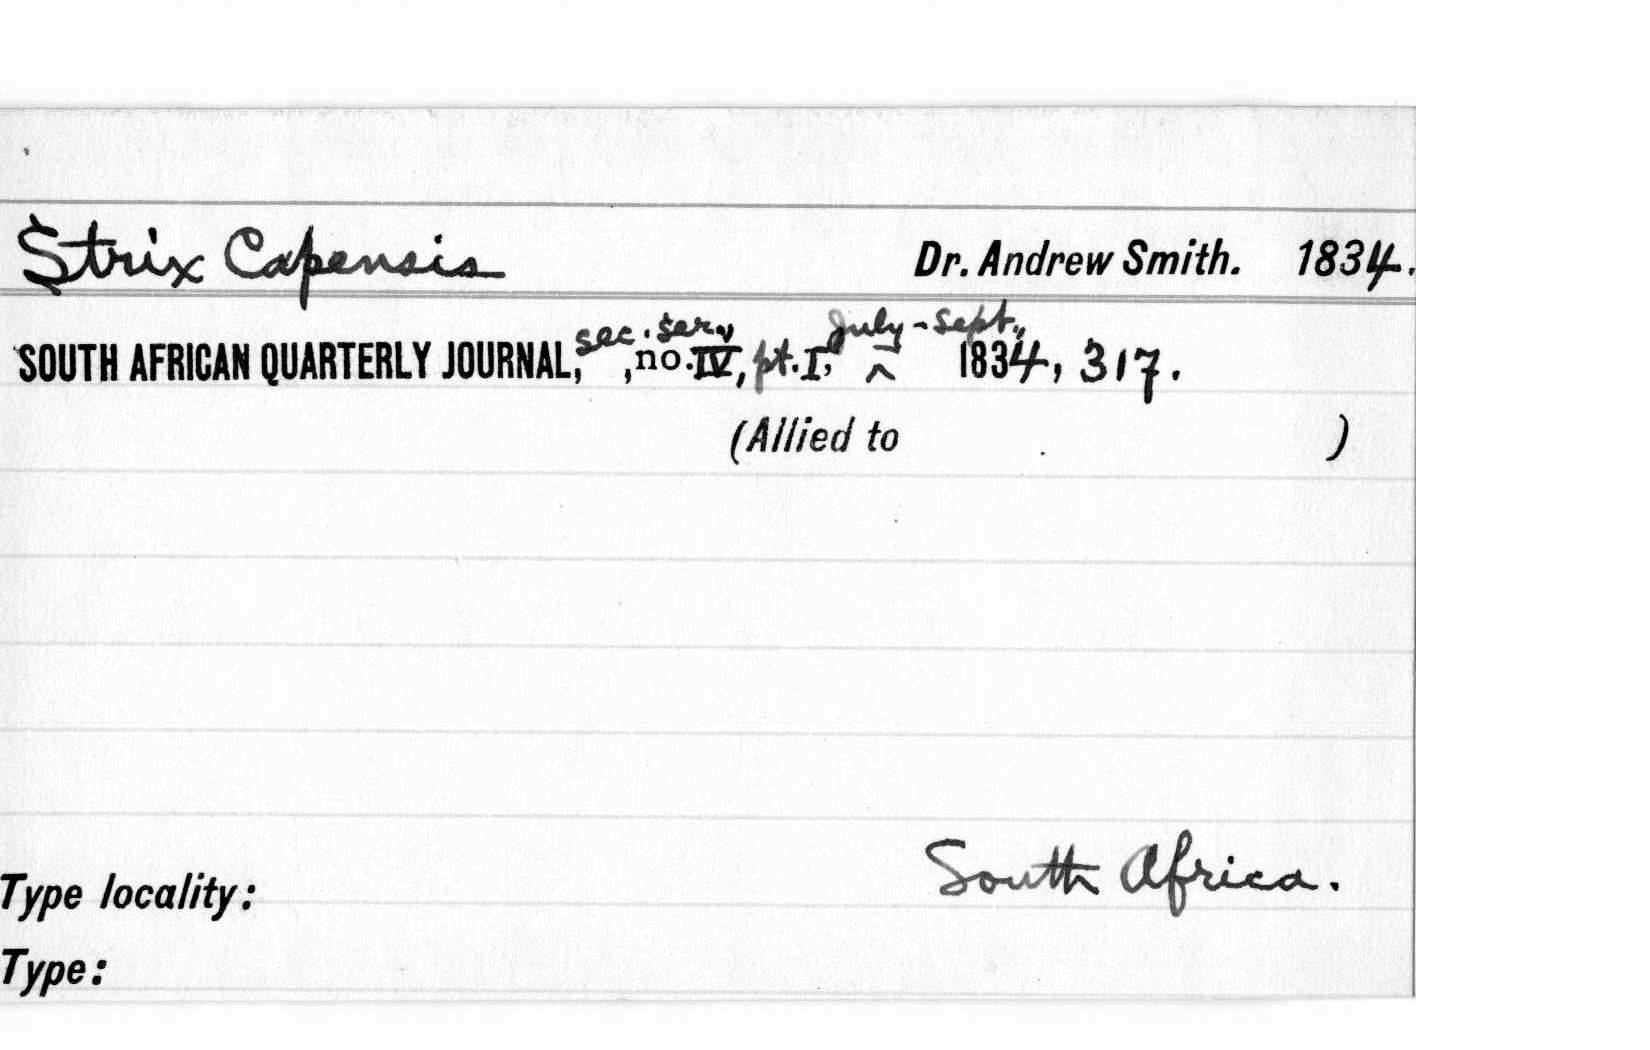 Strix Capensis Dr. Andrew Smith. 1834.
SOUTH AFRICAN QUARTERLY JOURNAL, sec. ser., no. IV, pt. I, July-Sept., 1834, 317.
(Allied to )
South Africa.
Type locality:
Type: